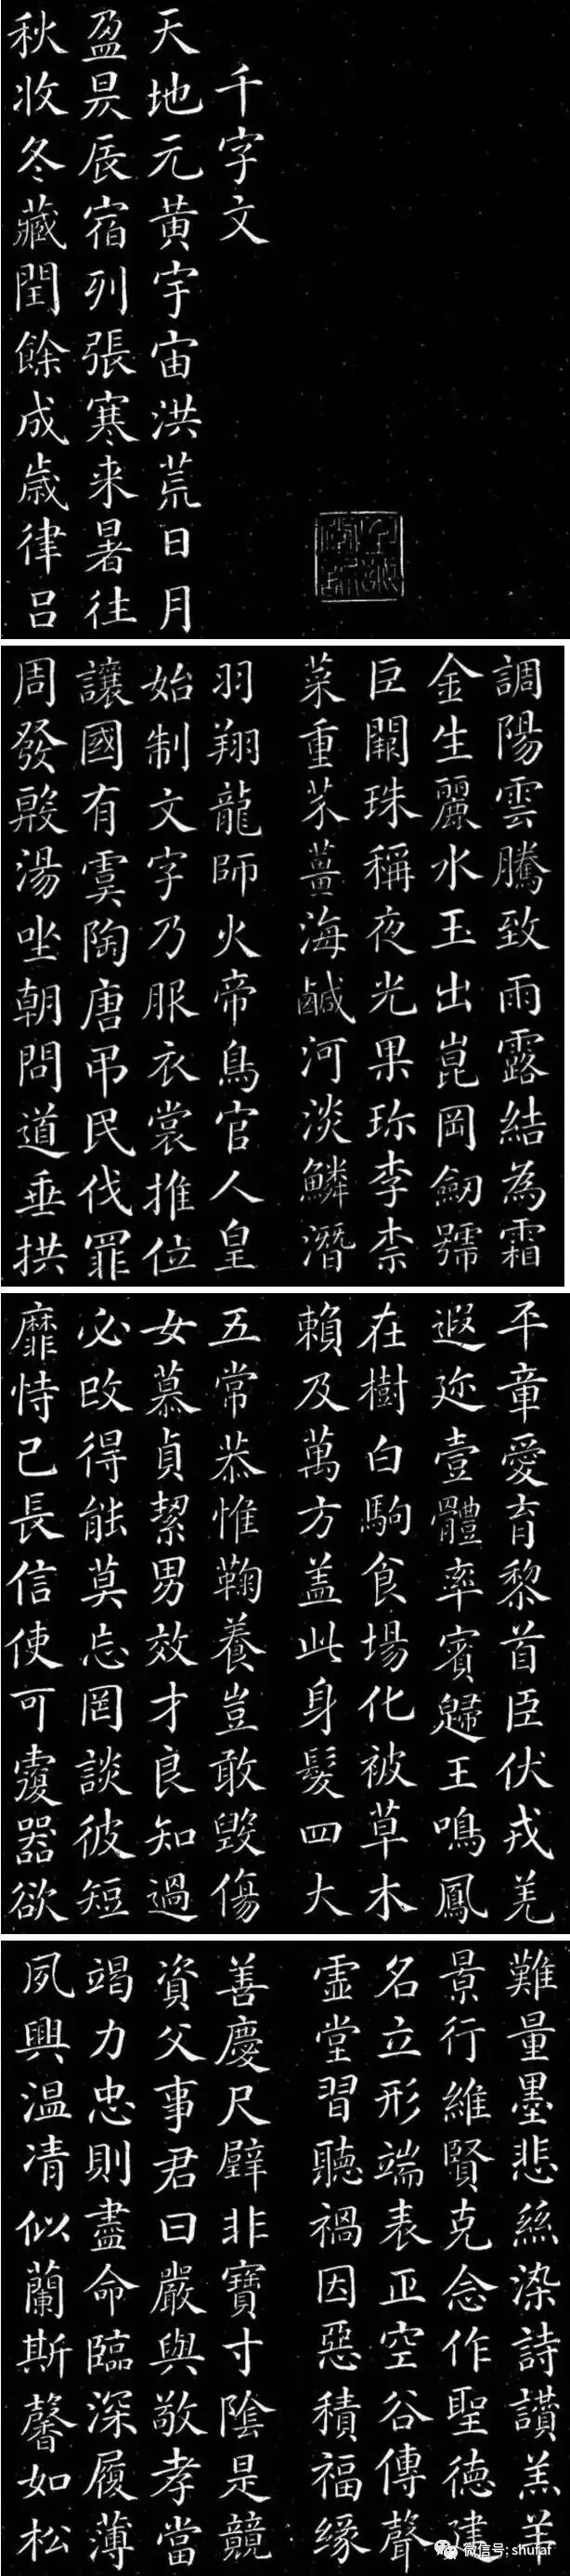 千字文
天地元黃宇宙洪荒日月
盈昃辰宿列張寒来暑往
秋收冬藏閏餘成歲律呂
調陽雲騰致雨露結為霜
金生麗水玉出崑岡劒號
巨闕珠稱夜光果珎李柰
菜重芥薑海鹹河淡鱗潛
羽翔龍師火帝鳥官人皇
始制文字乃服衣裳推位
讓國有虞陶唐吊民伐罪
周發殷湯坐朝問道垂拱
平章愛育黎首臣伏戎羌
遐迩壹體率賓歸王鳴鳳
在樹白駒食場化被草木
賴及萬方盖此身髮四大
五常恭惟鞠養豈敢毀傷
女慕貞絜男效才良知過
必改得能莫忘罔談彼短
靡恃己長信使可覆器欲
難量墨悲絲染詩讚羔羊
景行維賢克念作聖德建
名立形端表正空谷傳聲
虛堂習聽禍因惡積福緣
善慶尺璧非寶寸陰是競
資父事君曰嚴與敬孝當
竭力忠則盡命臨深履薄
夙興温凊似蘭斯馨如松
微信号: shufaf